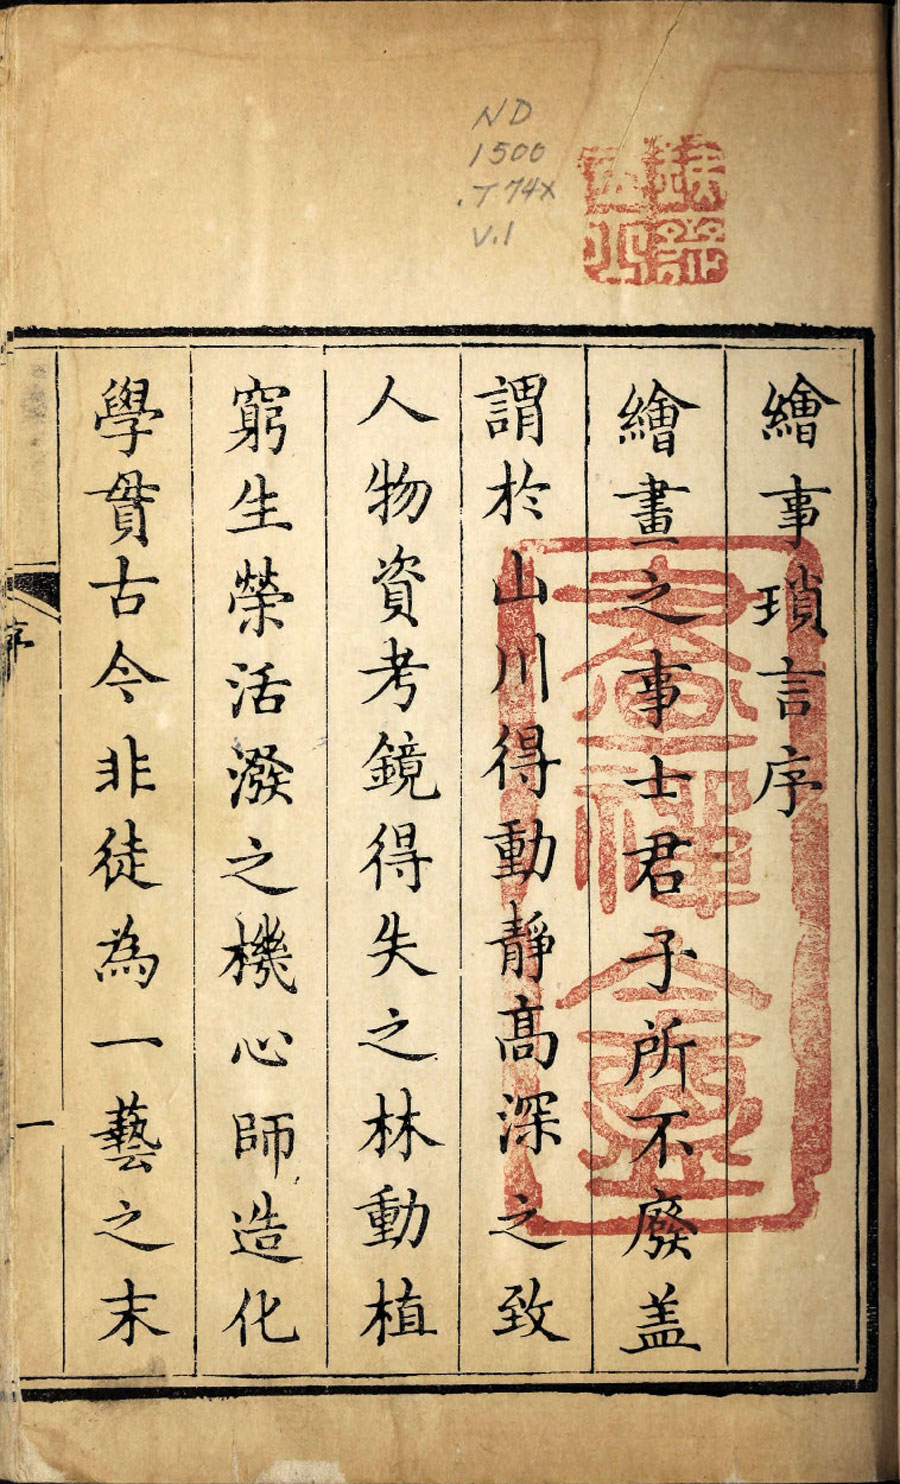 ND
1500
.T74x
V.1
繪事瑣言序
繪畫之事士君子所不廢盖
謂於山川得動靜高深之致
人物資考鏡得失之林動植
窮生榮活潑之機心師造化
學貫古今非徒為一藝之末
序
一